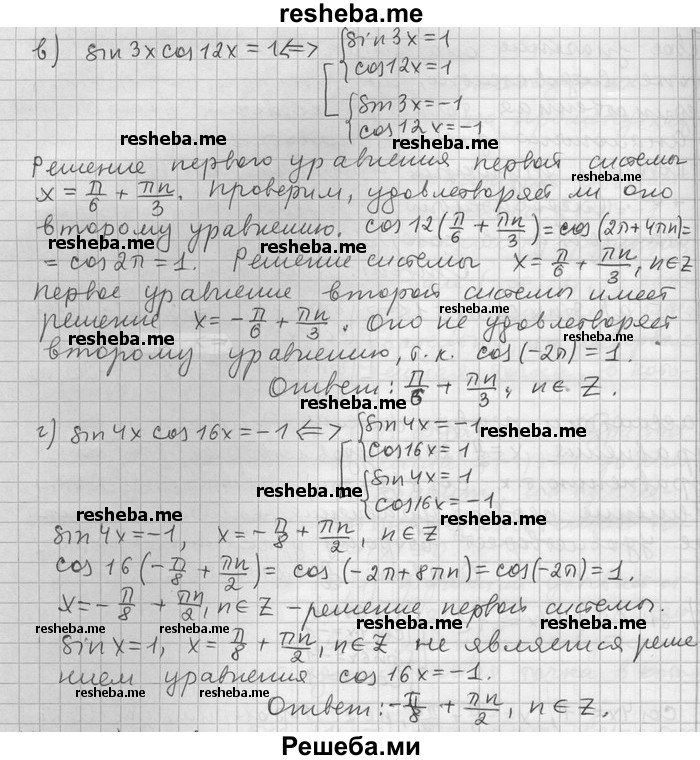 resheba.me
в) sin 3x cos 12x = 1 ⟺ [ { sin 3x = 1
{ cos 12x = 1
{ sin 3x = -1
{ cos 12x = -1
resheba.me resheba.me
Решение первого уравнения первой системы
x = π/6 + πn/3. Проверим, удовлетворяет ли оно
resheba.me
второму уравнению. cos 12(π/6 + πn/3) = cos (2π + 4πn) =
resheba.me resheba.me
= cos 2π = 1. Решение системы x = π/6 + πn/3, n∈Z
первое уравнение второй системы имеет
resheba.me
решение x = -π/6 + πn/3. Оно не удовлетворяет
resheba.me
второму уравнению, т.к. cos (-2π) = 1.
resheba.me
Ответ: π/6 + πn/3, n∈Z.
resheba.me
г) sin 4x cos 16x = -1 ⟺ [ { sin 4x = -1
resheba.me
{ cos 16x = 1
{ sin 4x = 1
{ cos 16x = -1
resheba.me
resheba.me resheba.me
sin 4x = -1, x = -π/8 + πn/2, n∈Z
cos 16 (-π/8 + πn/2) = cos (-2π + 8πn) = cos(-2π) = 1.
x = -π/8 + πn/2, n∈Z - решение первой системы.
resheba.me resheba.me resheba.me
sin x = 1, x = π/8 + πn/2, n∈Z не является реше
нием уравнения cos 16x = -1.
resheba.me resheba.me
Ответ: -π/8 + πn/2, n∈Z.
resheba.me
Решеба.ми